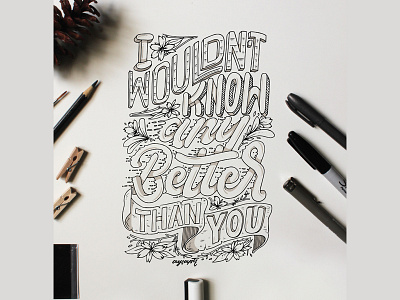 I
WOULDN'T
KNOW
any
Better
THAN YOU